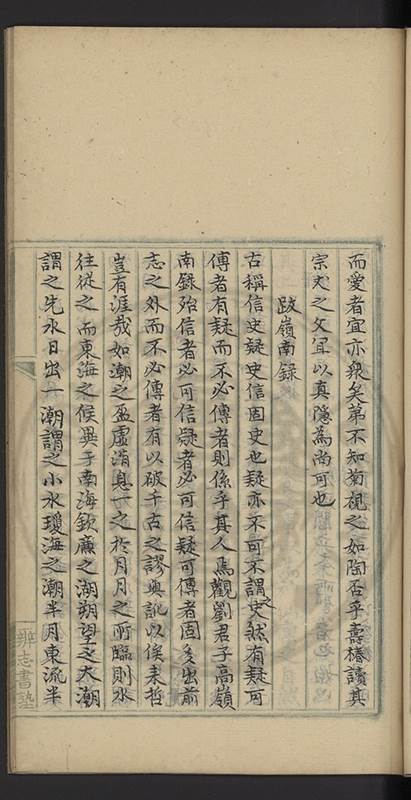 而愛者宜亦衆矣第不知菊視之如陶否乎壽椿讀其
宗丈之文宜以真隱為尚可也
跋嶺南録
古稱信史疑史信固史也疑亦不可不謂之史然有疑可
傳者有疑而不必傳者則係乎其人焉觀劉君子高嶺
南録殆信者必可信疑者必可信疑可傳者固多出前
志之外而不必傳者有以破千古之謬與訛以俟来哲
豈有涯哉如潮之盈虚消息一之於月月之所臨則水
往從之而東海之候異于南海欽廉之潮朔望之大潮
謂之先水日出一潮謂之小水瓊海之潮半月東流半
辨志書塾